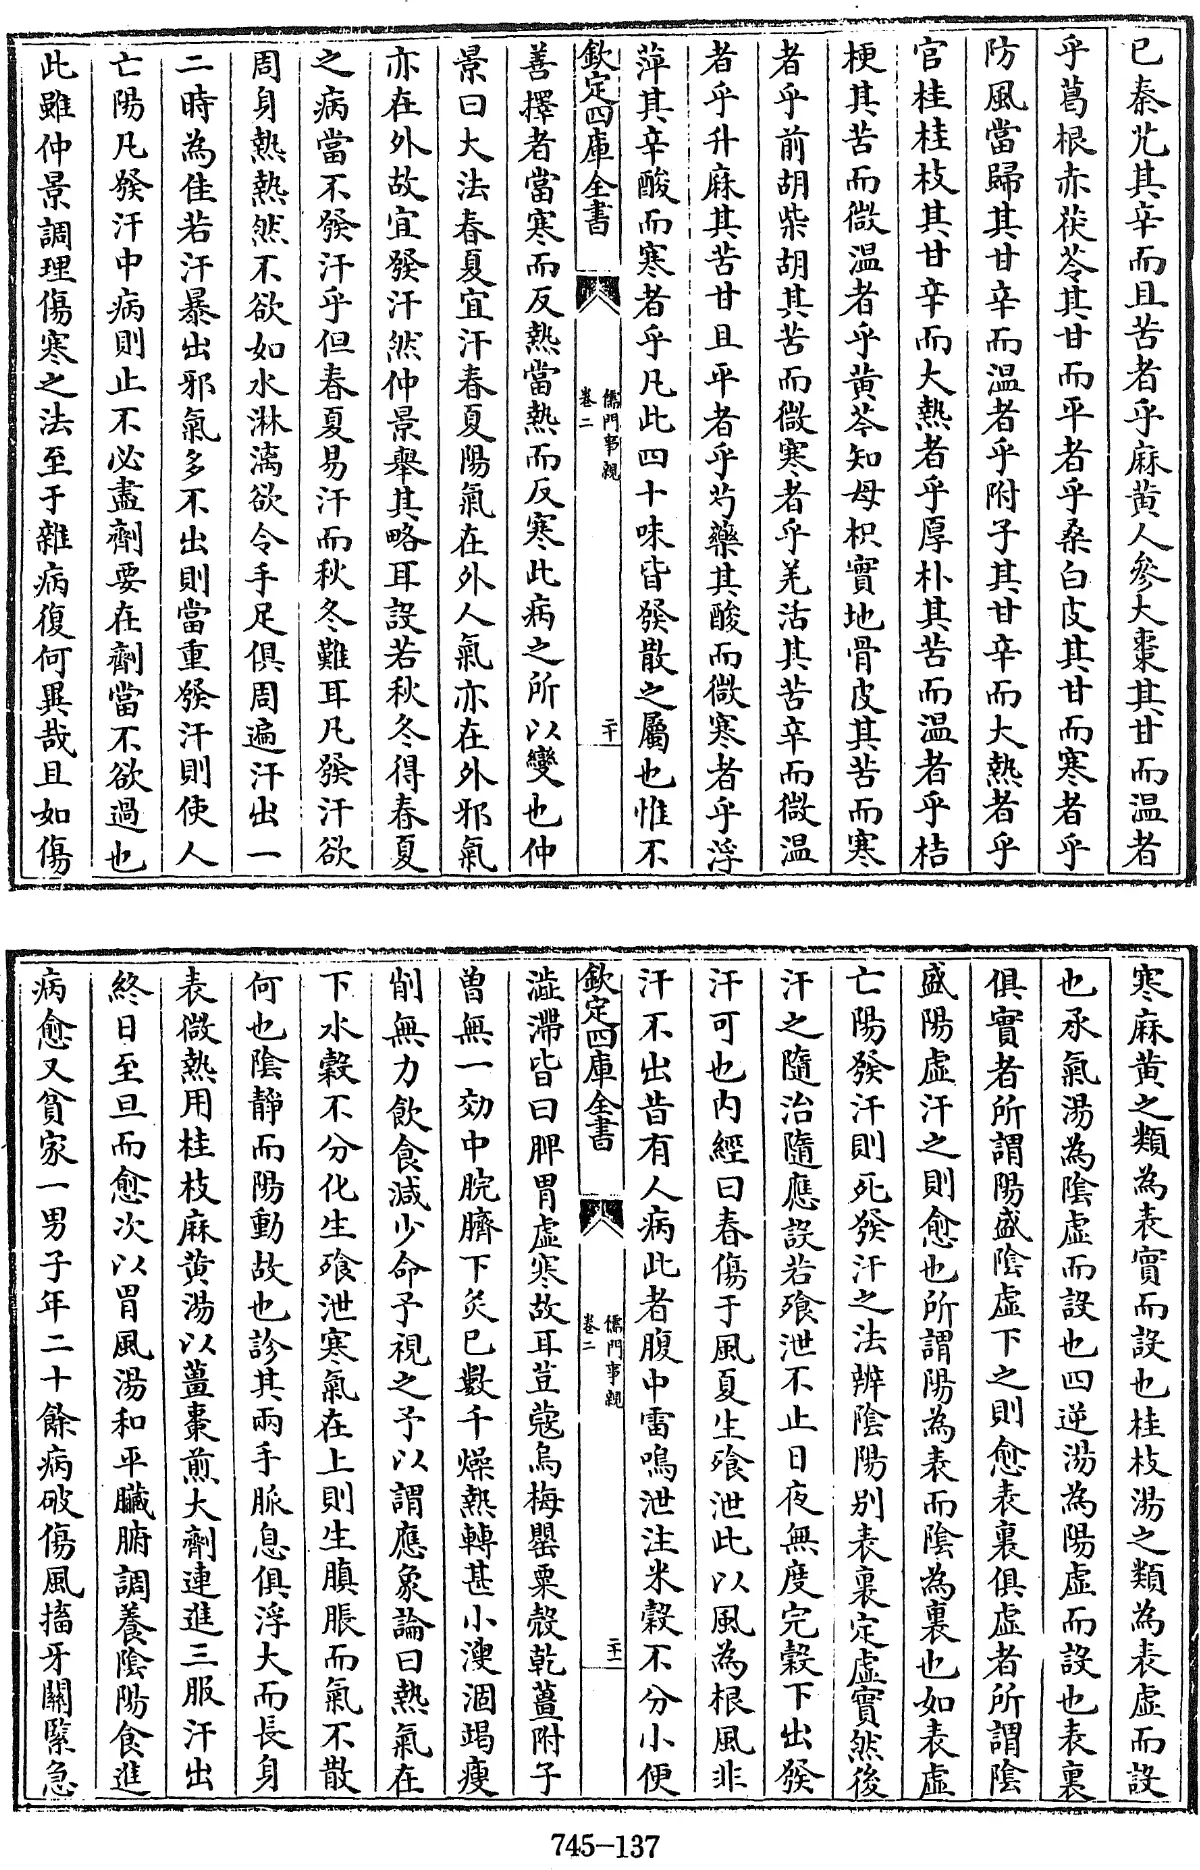 已秦艽其辛而且苦者乎麻黄人參大棗其甘而温者
乎葛根赤茯苓其甘而平者乎桑白皮其甘而寒者乎
防風當歸其甘辛而温者乎附子其甘辛而大熱者乎
官桂桂枝其甘辛而大熱者乎厚朴其苦而温者乎桔
梗其苦而微温者乎黄芩知母枳實地骨皮其苦而寒
者乎前胡柴胡其苦而微寒者乎羌活其苦辛而微温
者乎升麻其苦甘且平者乎芍藥其酸而微寒者乎浮
萍其辛酸而寒者乎凡此四十味皆發散之屬也惟不
欽定四庫全書
儒門事親
卷二
二十
善擇者當寒而反熱當熱而反寒此病之所以變也仲
景曰大法春夏宜汗春夏陽氣在外人氣亦在外邪氣
亦在外故宜發汗然仲景舉其略耳設若秋冬得春夏
之病當不發汗乎但春夏易汗而秋冬難耳凡發汗欲
周身熱熱然不欲如水淋漓欲令手足俱周遍汗出一
二時為佳若汗暴出邪氣多不出則當重發汗則使人
亡陽凡發汗中病則止不必盡劑要在劑當不欲過也
此雖仲景調理傷寒之法至于雜病復何異哉且如傷
寒麻黄之類為表實而設也桂枝湯之類為表虚而設
也承氣湯為陰虚而設也四逆湯為陽虚而設也表裏
俱實者所謂陽盛陰虚下之則愈表裏俱虚者所謂陰
盛陽虚汗之則愈也所謂陽為表而陰為裏也如表虚
亡陽發汗則死發汗之法辨陰陽别表裏定虚實然後
汗之隨治隨應設若飱泄不止日夜無度完穀下出發
汗可也内經曰春傷于風夏生飱泄此以風為根風非
汗不出昔有人病此者腹中雷鳴泄注米穀不分小便
欽定四庫全書
儒門事親
卷二
二十一
澁滯皆曰脾胃虚寒故耳荳蔻烏梅罌粟殻乾薑附子
曽無一効中脘臍下灸已數千燥熱轉甚小溲涸竭瘦
削無力飲食減少命予視之予以謂應象論曰熱氣在
下水榖不分化生飱泄寒氣在上則生䐜脹而氣不散
何也陰靜而陽動故也診其兩手脈息俱浮大而長身
表微熱用桂枝麻黄湯以薑棗煎大劑連進三服汗出
終日至旦而愈次以胃風湯和平臟腑調養陰陽食進
病愈又貧家一男子年二十餘病破傷風搐牙關緊急
745-137